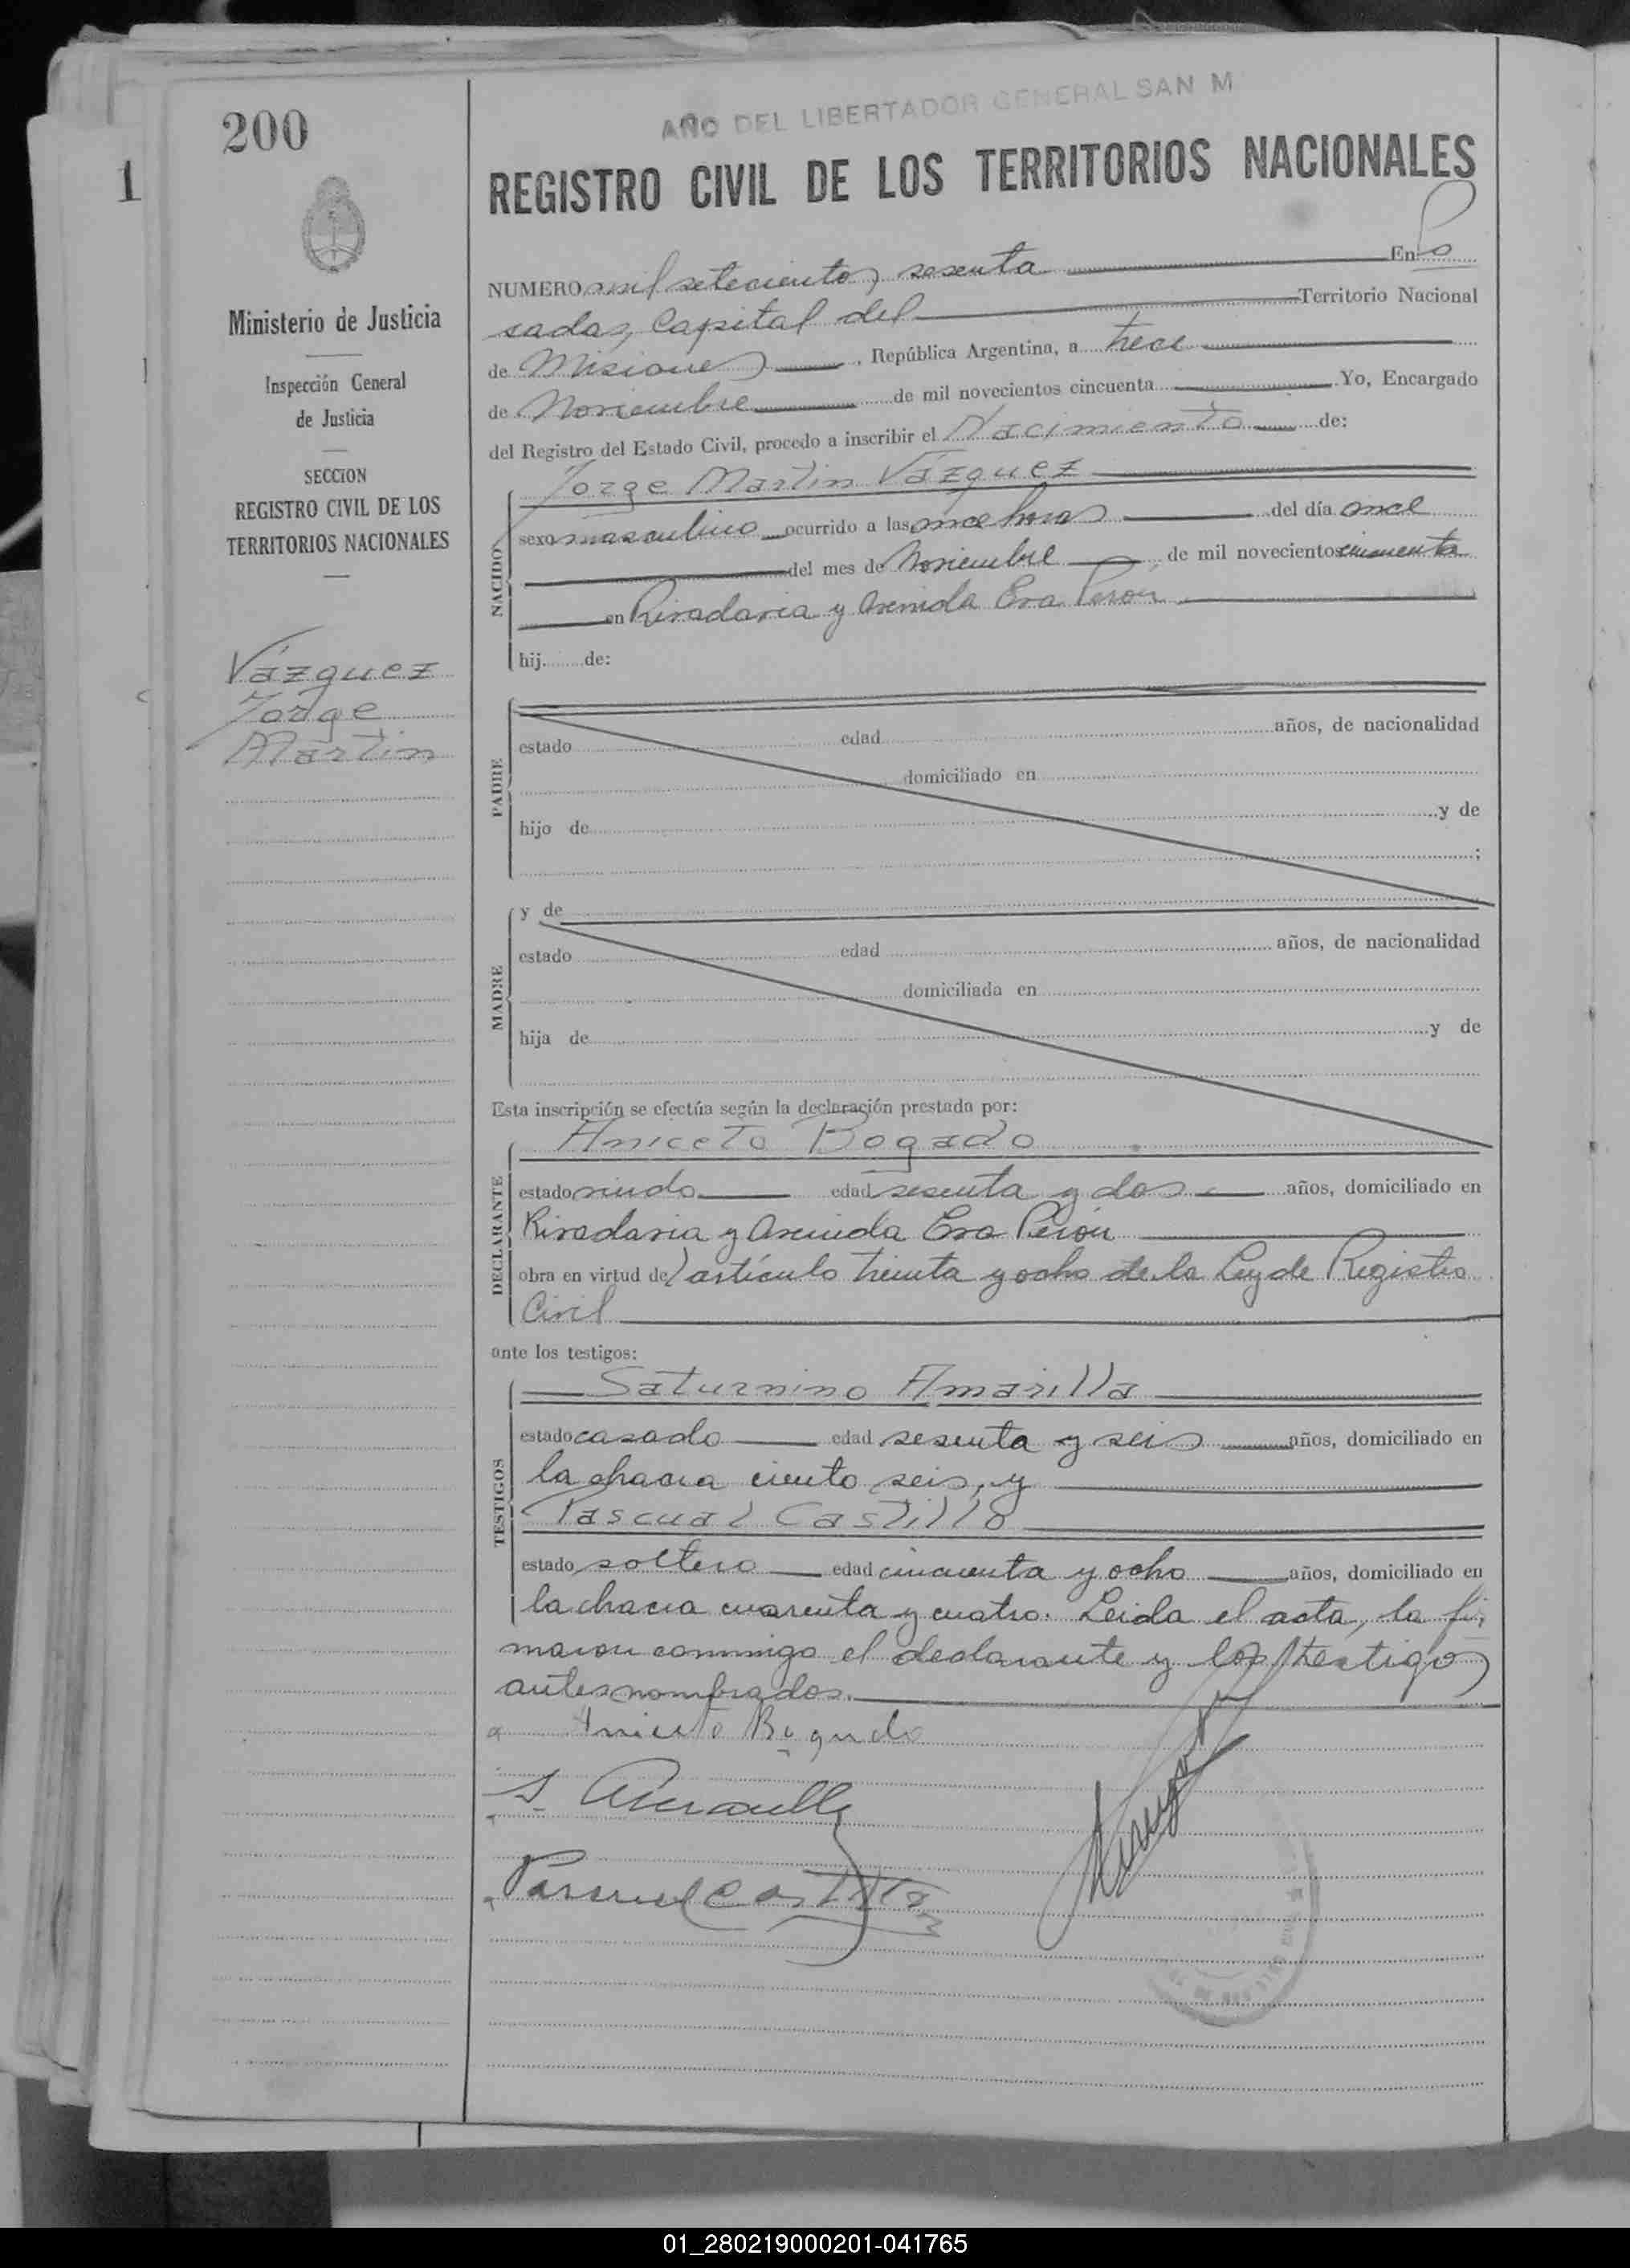 200
1
AÑO DEL LIBERTADOR GENERAL SAN M
REGISTRO CIVIL DE LOS TERRITORIOS NACIONALES
Ministerio de Justicia
Inspección General
de Justicia
SECCION
REGISTRO CIVIL DE LOS
TERRITORIOS NACIONALES
Vázquez
Jorge
Martin
NUMERO mil setecientos sesenta En Po
sadas, Capital del Territorio Nacional
de Misiones, República Argentina, a trece
de Noviembre de mil novecientos cincuenta Yo, Encargado
del Registro del Estado Civil, procedo a inscribir el Nacimiento de:
Jorge Martin Vázquez
NACIDO
sexo masculino ocurrido a las once horas del día once
del mes de Noviembre de mil novecientos cincuenta
en Rivadavia y Avenida Eva Perón
hij de:
PADRE
estado edad años, de nacionalidad
domiciliado en
hijo de y de
;
MADRE
y de
estado edad años, de nacionalidad
domiciliada en
hija de y de
Esta inscripción se efectúa según la declaración prestada por:
DECLARANTE
Aniceto Bogado
estado viudo edad sesenta y dos años, domiciliado en
Rivadavia y Avenida Eva Perón
obra en virtud del artículo treinta y ocho de la Ley de Registro
Civil
ante los testigos:
TESTIGOS
Saturnino Amarilla
estado casado edad sesenta y seis años, domiciliado en
la chacra ciento seis, y
Pascual Castillo
estado soltero edad cincuenta y ocho años, domiciliado en
la chacra cuarenta y cuatro. Leida el acta, la fir
maron conmigo el declarante y los testigos
antes nombrados.
Aniceto Bogado
S. Amarilla
Pascual Castillo
01_280219000201-041765